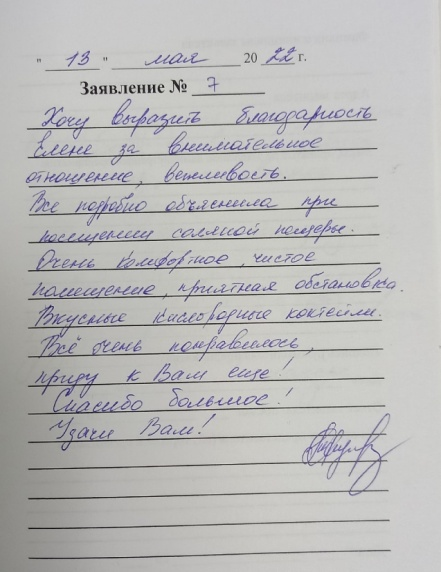 " 13 " мая 2022 г.
Заявление № 7
Хочу выразить благодарность
Елене за внимательное
отношение, вежливость.
Всё подробно объяснила при
посещении соляной пещеры.
Очень комфортное, чистое
помещение, приятная обстановка.
Вкусные кислородные коктейли.
Всё очень понравилось,
приду к Вам еще!
Спасибо большое!
Удачи Вам!